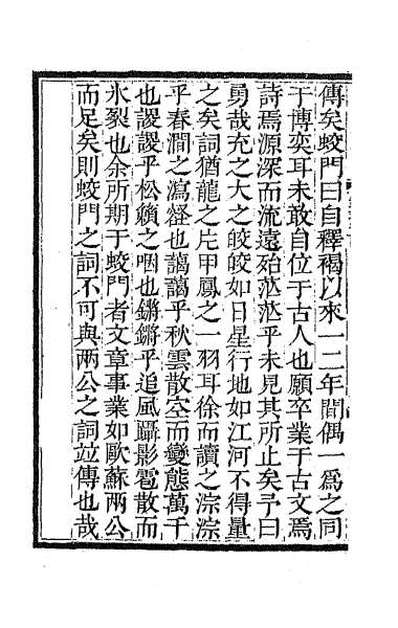 傳矣蛟門曰自釋褐以來一二年間偶一爲之同
于博奕耳未敢自位于古人也願卒業于古文焉
詩焉源深而流遠殆茫茫乎未見其所止矣予曰
勇哉充之大之皎皎如日星行地如江河不得量
之矣詞猶龍之片甲鳳之一羽耳徐而讀之淙淙
乎春澗之瀉磴也藹藹乎秋雲散空而變態萬千
也謖謖乎松籟之咽也鏘鏘乎追風躡影雹散而
氷裂也余所期于蛟門者文章事業如歐蘇兩公
而足矣則蛟門之詞不可與兩公之詞竝傳也哉